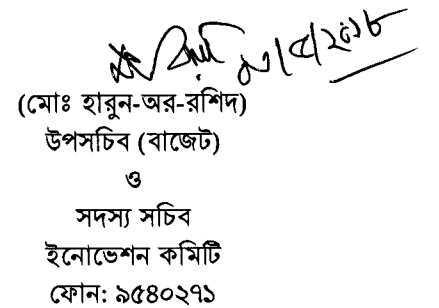 (মোঃ হারুন-অর-রশিদ)
উপসচিব (বাজেট)
ও
সদস্য সচিব
ইনোভেশন কমিটি
ফোন: ৯৫৪০২৭১